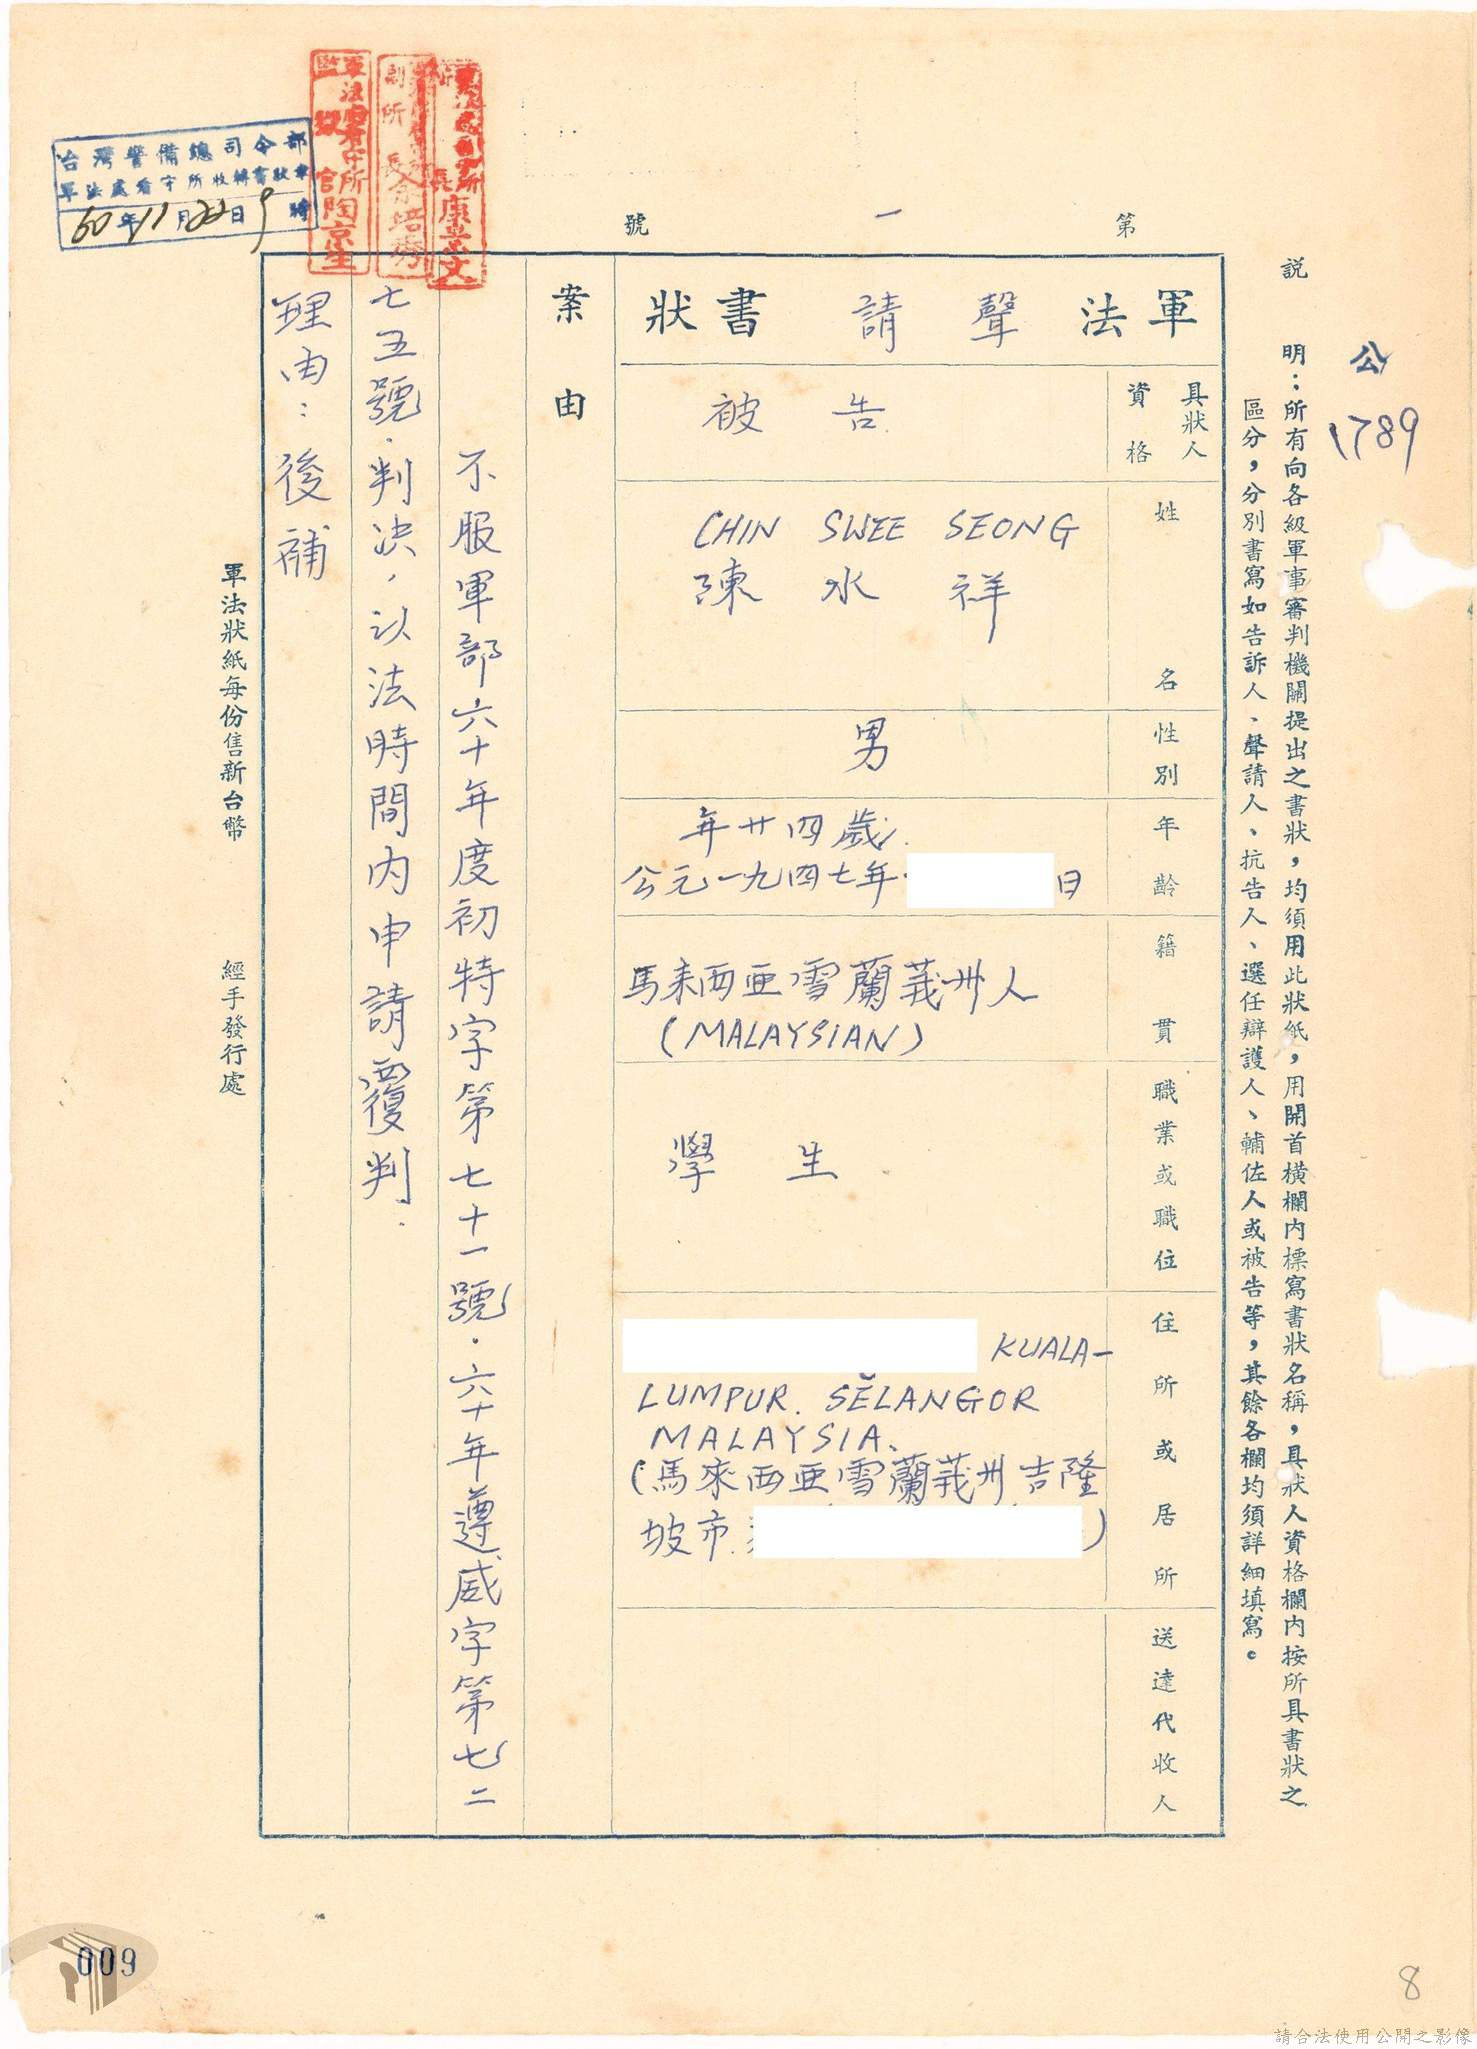 公
1789
說　明：所有向各級軍事審判機關提出之書狀，均須用此狀紙，用開首橫欄內標寫書狀名稱，具狀人資格欄內按所具書狀之
區分，分別書寫如告訴人、聲請人、抗告人、選任辯護人、輔佐人或被告等，其餘各欄均須詳細填寫。
第　一　號
軍法　聲請　書狀
具狀人資格
被告
姓名
CHIN SWEE SEONG
陳水祥
性別
男
年齡
年廿四歲
公元一九四七年
日
籍貫
馬來西亜雪蘭莪州人
(MALAYSIAN)
職業或職位
學生
住所或居所
KUALA-
LUMPUR. SĚLANGOR
MALAYSIA.
(馬來西亜雪蘭莪州吉隆
坡市
)
送達代收人
案由
不服軍部六十年度初特字第七十一號．六十年遵威字第七二
七五號．判決，以法時間內申請覆判．
理由：後補
台灣警備總司令部
軍法處看守所收轉書狀章
60年11月22日9時
康立文
副所長余培秀
軍法處看守所
監獄官陶京生
軍法狀紙每份售新台幣
經手發行處
009
8
請合法使用公開之影像